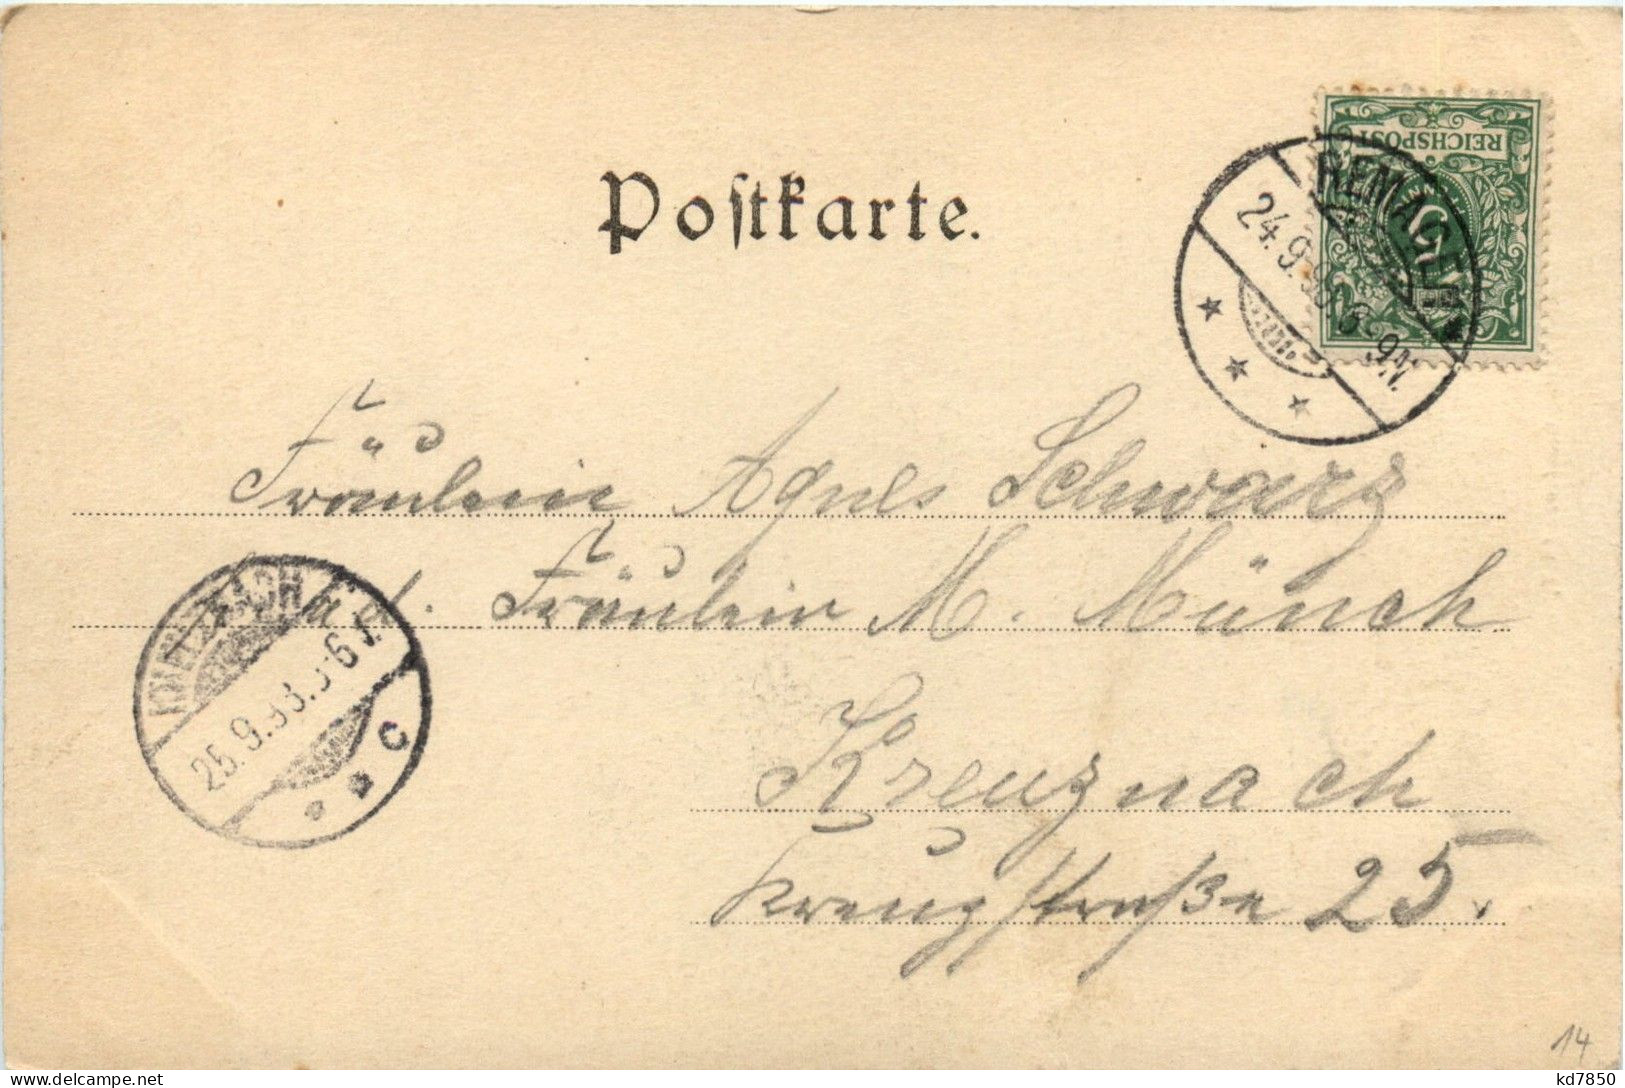 Postkarte.
REICHSPOST
REMAGEN
24.9.98. 6-9N.
Fräulein Agnes Schwarz
Fräulein M. Münch
KREUZNACH
25.9.98. 6
C
Kreuznach
Kreuzstraße 25.
14
kd7850